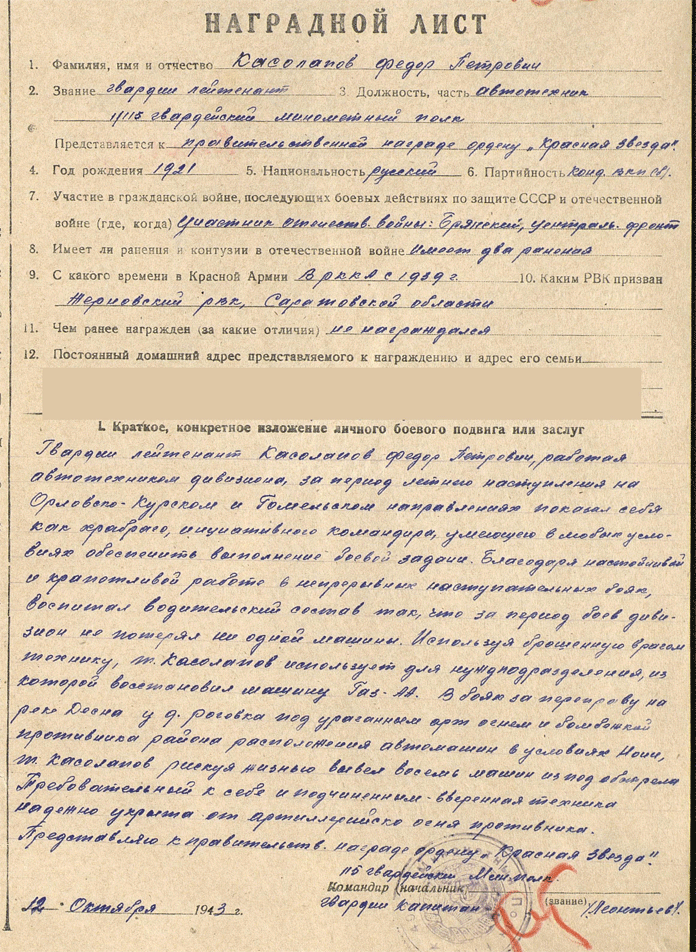 НАГРАДНОЙ ЛИСТ
1. Фамилия, имя и отчество Касолапов Федор Петрович
2. Звание гвардии лейтенант 3. Должность, часть автотехник
1/115 гвардейский минометный полк
Представляется к правительственной награде ордену „Красная Звезда".
4. Год рождения 1921 5. Национальность русский 6. Партийность Канд. ВКП(б).
7. Участие в гражданской войне, последующих боевых действиях по защите СССР и отечественной
войне (где, когда) Участник отечеств. войны: Брянский, централь. фронт
8. Имеет ли ранения и контузии в отечественной войне Имеет два ранения
9. С какого времени в Красной Армии В РККА с 1939 г. 10. Каким РВК призван
Терновский рвк, Саратовской области
11. Чем ранее награжден (за какие отличия) не награждался
12. Постоянный домашний адрес представляемого к награждению и адрес его семьи
I. Краткое, конкретное изложение личного боевого подвига или заслуг
Гвардии лейтенант Касолапов Федор Петрович, работая
автотехником дивизиона, за период летнего наступления на
Орловско-Курском и Гомельском направлениях показал себя
как храброго, инициативного командира, умеющего в любых усло-
виях обеспечить выполнение боевой задачи. Благодаря настойчивой
и крапотливой работе в непрерывных наступательных боях,
воспитал водительский состав так, что за период боев диви-
зион не потерял ни одной машины. Используя брошенную врагом
технику, т. Касолапов использует для нужд подразделения, из
которой восстановил машину Газ-АА. В боях за переправу на
реке Десна у д. Роговка под ураганным арт огнем и бомбежкой
противника района расположения автомашин в условиях Ночи,
т. Касолапов рискуя жизнью вывел восемь машин из под обстрела
Требовательный к себе и подчиненным - вверенная техника
надежно укрыта от артиллерийско огня противника.
Представляю к правительств. награде ордену „Красная Звезда".
115 гвардейский Мин.полк
Командир (начальник)
гвардии капитан (звание) /Леонтьев/
12 Октября 1943 г.